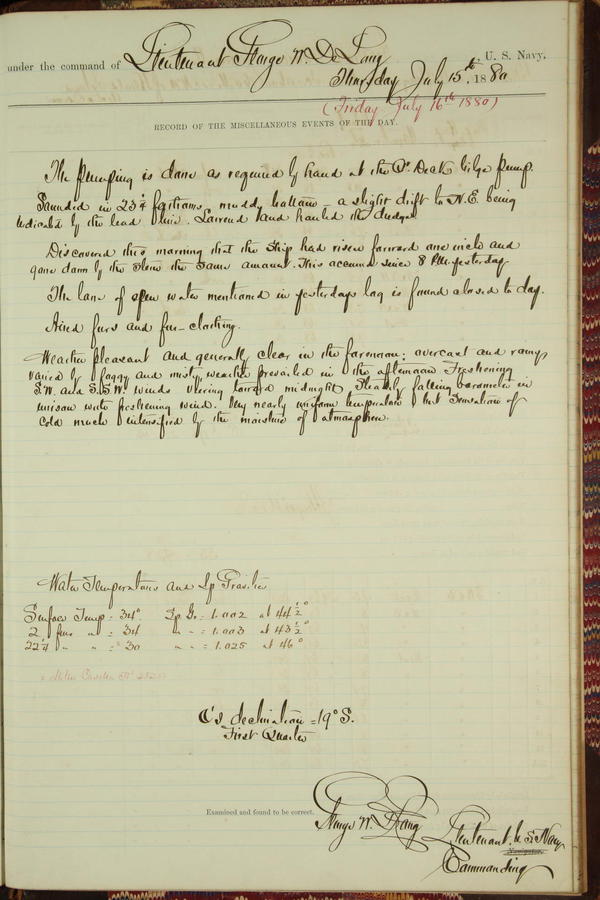 under the command of Lieutenant George W. De Long, U. S. Navy.
Thursday July 15th, 1880
(Friday July 16th 1880)
RECORD OF THE MISCELLANEOUS EVENTS OF THE DAY.
The pumping is done as required by hand at the Qr. Deck bilge pump.
Sounded in 23¼ fathoms, muddy bottom – a slight drift to N.E. being
indicated by the lead line. Lowered and hauled the dredge.
Discovered this morning that the Ship had risen forward one inch and
gone down by the Stern the same amount. This occurred since 8 P.M. yesterday.
The lane of open water mentioned in yesterdays log is found closed to day.
Aired furs and fur clothing.
Weather pleasant and generally clear in the forenoon: overcast and rainy
varied by foggy and misty weather prevailed in the afternoon Freshening
S.W. and S.S.W. winds veering toward midnight. Steadily falling barometer in
unison with freshening wind. Very nearly uniform temperature but Sensation of
Cold much intensified by the moisture of atmosphere.
Water Temperatures and Sp Gravities
Surface Temp = 34° Sp Gr = 1.002 at 44½°
2 fms " = 34 " " = 1.003 at 43½°
22¼ " " = 30 " " = 1.025 at 46°
☾'s declination = 19° S.
First Quarter
Examined and found to be correct.
George W. De Long Lieutenant U. S. Navy
Navigator.
Commanding